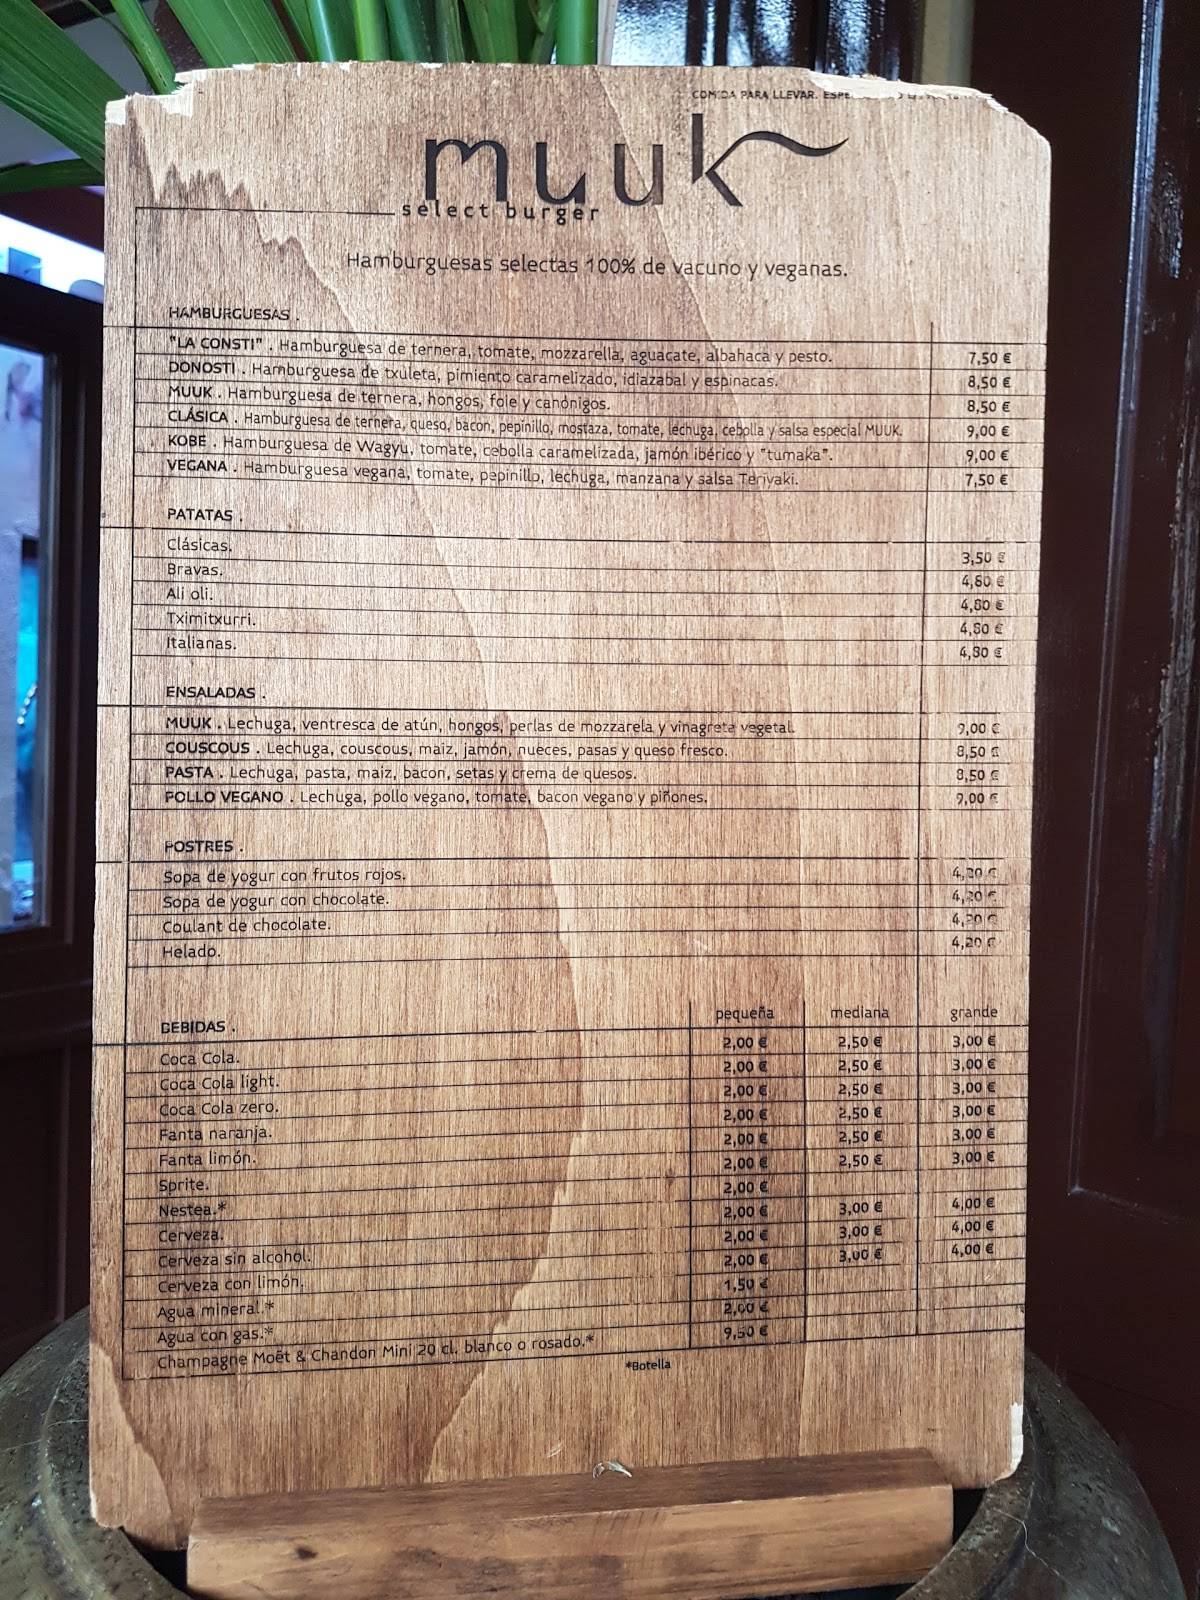 COMIDA PARA LLEVAR.
muuk
select burger
Hamburguesas selectas 100% de vacuno y veganas.
HAMBURGUESAS .
"LA CONSTI" . Hamburguesa de ternera, tomate, mozzarella, aguacate, albahaca y pesto. 7,50 €
DONOSTI . Hamburguesa de txuleta, pimiento caramelizado, idiazabal y espinacas. 8,50 €
MUUK . Hamburguesa de ternera, hongos, foie y canónigos. 8,50 €
CLÁSICA . Hamburguesa de ternera, queso, bacon, pepinillo, mostaza, tomate, lechuga, cebolla y salsa especial MUUK. 9,00 €
KOBE . Hamburguesa de Wagyu, tomate, cebolla caramelizada, jamón ibérico y "tumaka". 9,00 €
VEGANA . Hamburguesa vegana, tomate, pepinillo, lechuga, manzana y salsa Teriyaki. 7,50 €
PATATAS .
Clásicas. 3,50 €
Bravas. 4,80 €
Ali oli. 4,80 €
Tximitxurri. 4,80 €
Italianas. 4,80 €
ENSALADAS .
MUUK . Lechuga, ventresca de atún, hongos, perlas de mozzarela y vinagreta vegetal. 9,00 €
COUSCOUS . Lechuga, couscous, maiz, jamón, nueces, pasas y queso fresco. 8,50 €
PASTA . Lechuga, pasta, maiz, bacon, setas y crema de quesos. 8,50 €
POLLO VEGANO . Lechuga, pollo vegano, tomate, bacon vegano y piñones. 9,00 €
POSTRES .
Sopa de yogur con frutos rojos. 4,20 €
Sopa de yogur con chocolate. 4,20 €
Coulant de chocolate. 4,20 €
Helado. 4,20 €
BEBIDAS . pequeña mediana grande
Coca Cola. 2,00 € 2,50 € 3,00 €
Coca Cola light. 2,00 € 2,50 € 3,00 €
Coca Cola zero. 2,00 € 2,50 € 3,00 €
Fanta naranja. 2,00 € 2,50 € 3,00 €
Fanta limón. 2,00 € 2,50 € 3,00 €
Sprite. 2,00 € 2,50 € 3,00 €
Nestea.* 2,00 €
Cerveza. 2,00 € 3,00 € 4,00 €
Cerveza sin alcohol. 2,00 € 3,00 € 4,00 €
Cerveza con limón. 2,00 € 3,00 € 4,00 €
Agua mineral.* 1,50 €
Agua con gas.* 2,00 €
Champagne Moët & Chandon Mini 20 cl. blanco o rosado.* 9,50 €
*Botella